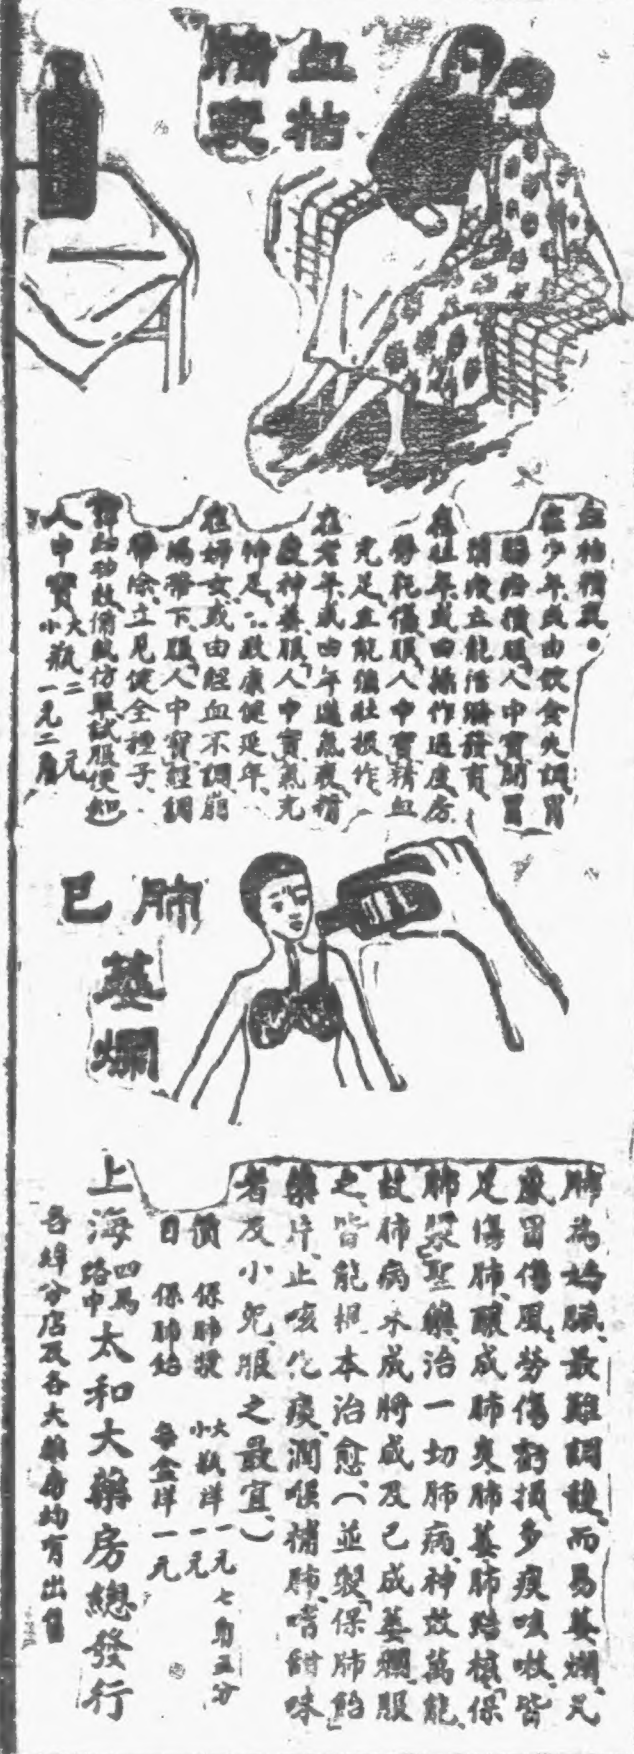 血枯
精衰
血枯精衰。
在少年或由飲食失調胃
腸癆積服人中寶開胃
消痰立能活潑發育、
在壯年或因操作過度房
勞耗傷服人中寶精血
充足並能強壯振作、
在老年或由年邁氣衰精
虛神萎服人中寶氣充
神足、必致康健延年、
在婦女或由經血不調崩
漏帶下服人中寶經調
帶除、立見健全種子、
人中寶 大瓶二元
小瓶一元二角
肺已
萎爛
肺為嬌臟、最難調護、而易萎爛、凡
感冒傷風、勞傷虧損、多痰咳嗽、皆
足傷肺、釀成肺炎、肺萎、肺結核、「保
肺漿」聖藥、治一切肺病、神效萬能、
故肺病未成將成及已成萎爛、服
之、皆能根本治愈、(並製「保肺飴」
藥片、止咳化痰、潤喉補肺、嗜甜味
者及小兒、服之最宜、)
價 保肺漿 大瓶洋一元七角五分
小瓶洋一元
目 保肺飴 每盒洋一元
上海四馬路中太和大藥房總發行
各埠分店及各大藥房均有出售